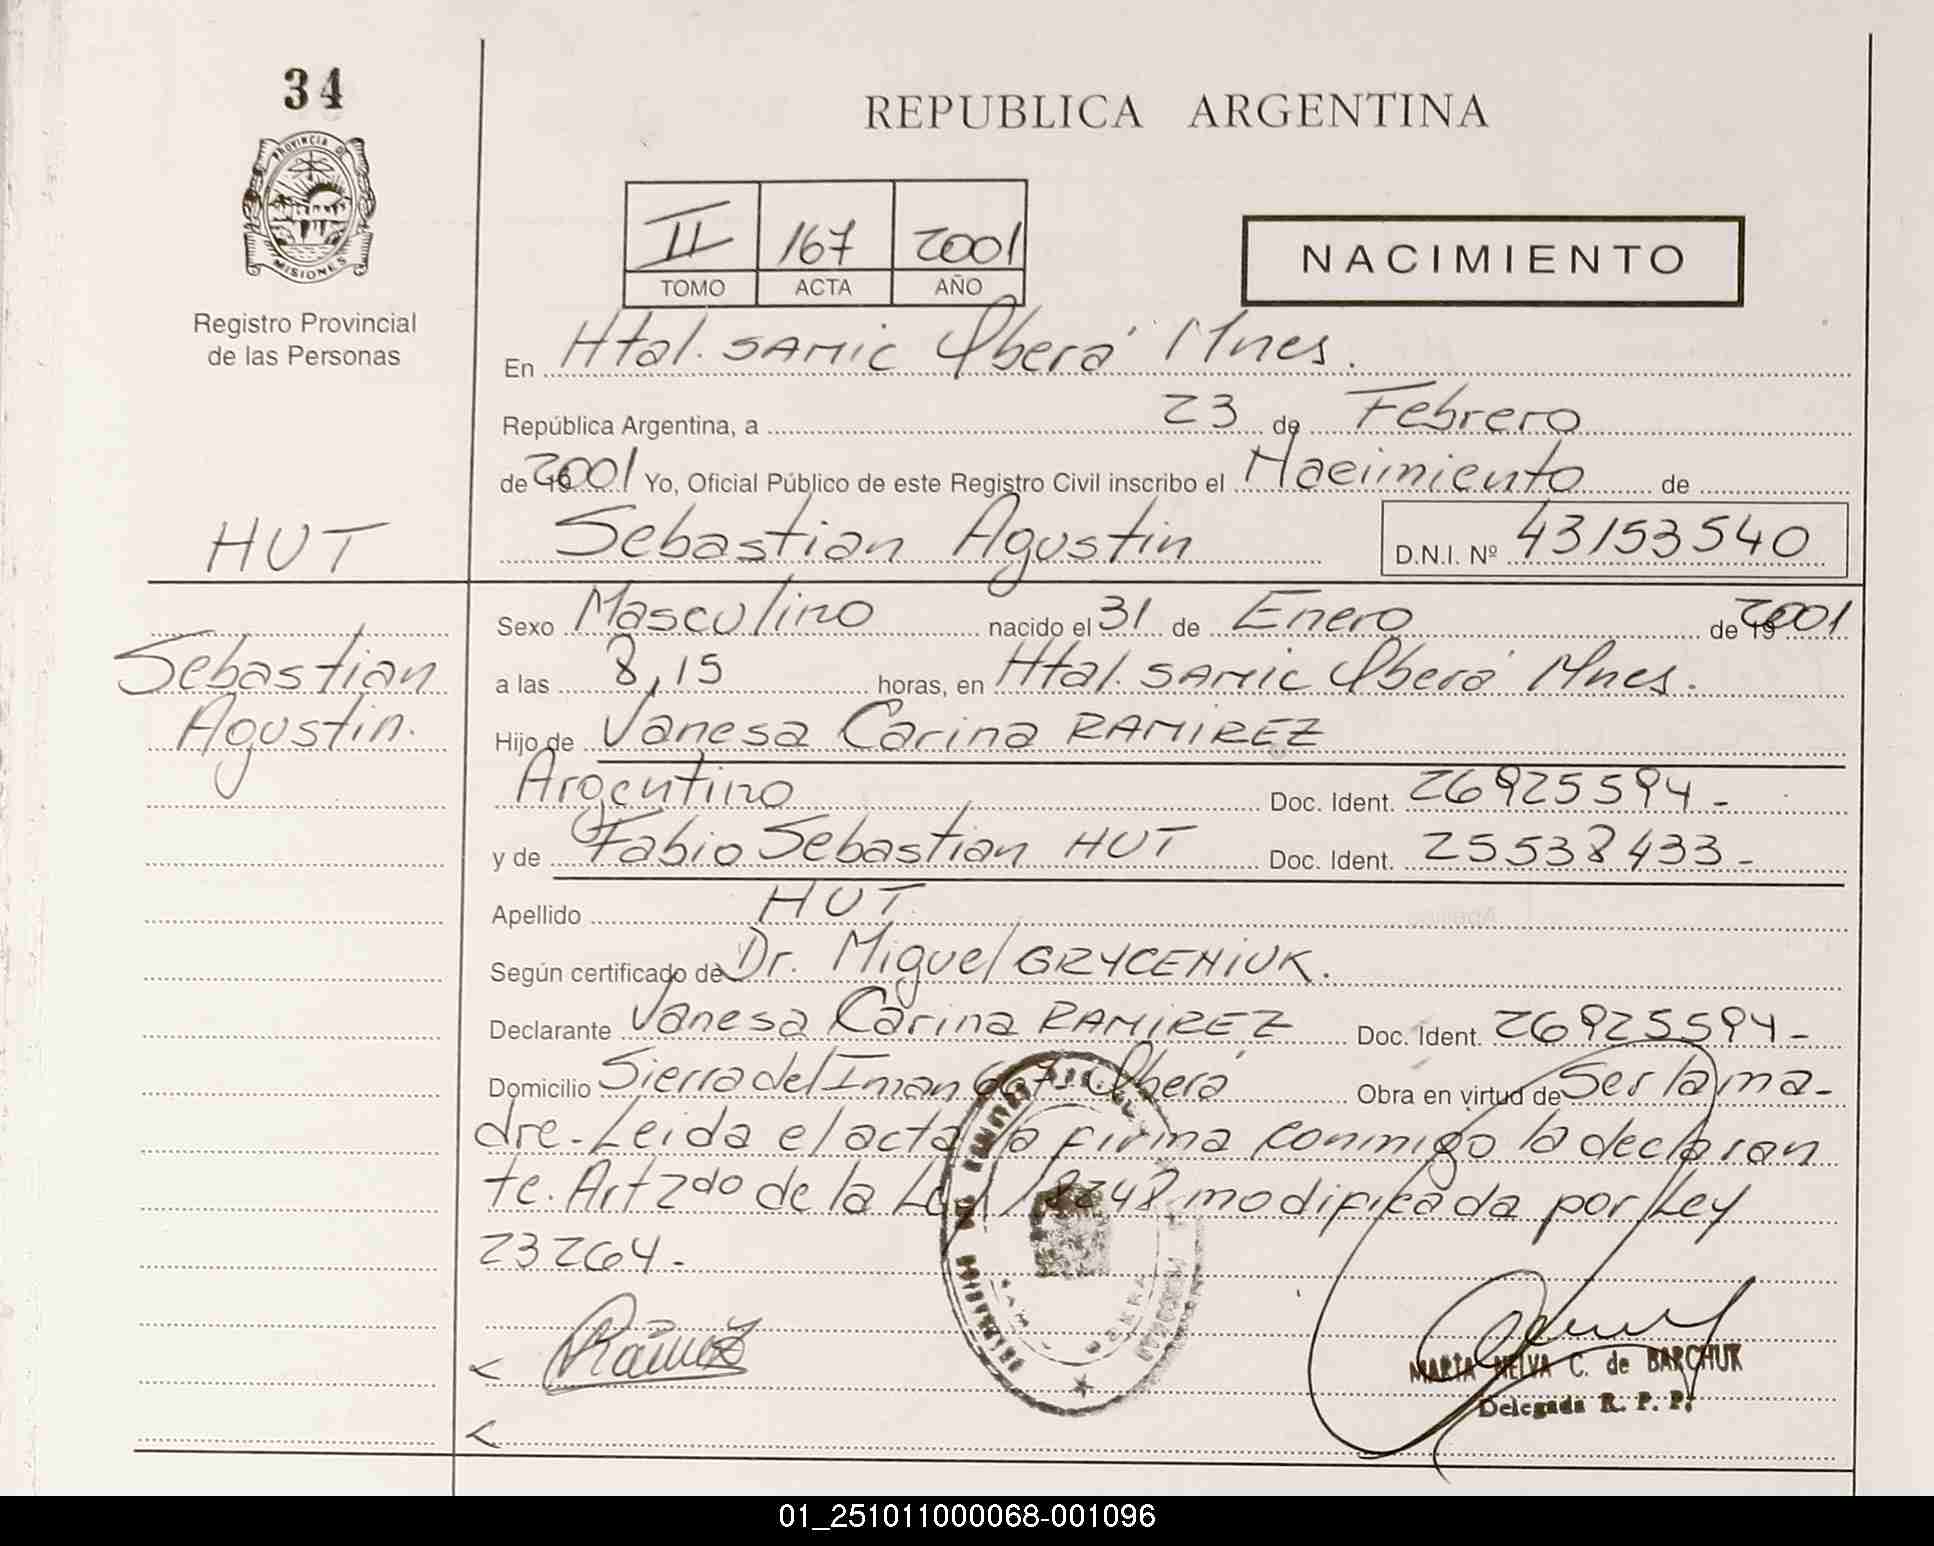 34
PROVINCIA D
MISIONES
Registro Provincial
de las Personas
REPUBLICA ARGENTINA
II 167 2001
TOMO ACTA AÑO
NACIMIENTO
En Htal. SAMIC Oberá Mnes.
República Argentina, a 23 de Febrero
de 2001 Yo, Oficial Público de este Registro Civil inscribo el Nacimiento de
HUT
Sebastian Agustin D.N.I. Nº 43153540
Sexo Masculino nacido el 31 de Enero de 19 2001
Sebastian
Agustin.
a las 8,15 horas, en Htal. SAMIC Oberá Mnes.
Hijo de Vanesa Carina RAMIREZ
Argentino Doc. Ident. 26925594-
y de Fabio Sebastian HUT Doc. Ident. 25538433-
Apellido HUT
Según certificado de Dr. Miguel GRYCENIUK.
Declarante Vanesa Carina RAMIREZ Doc. Ident. 26925594-
Domicilio Sierra del Iman 667- Oberá Obra en virtud de Ser la ma-
dre-Leida el acta la firma conmigo la declaran
te. Art 2do de la Ley 18248 modificada por Ley
23264-
Ramirez
MARIA NELVA C. de BARCHUK
Delegada R. P. P.
01_251011000068-001096